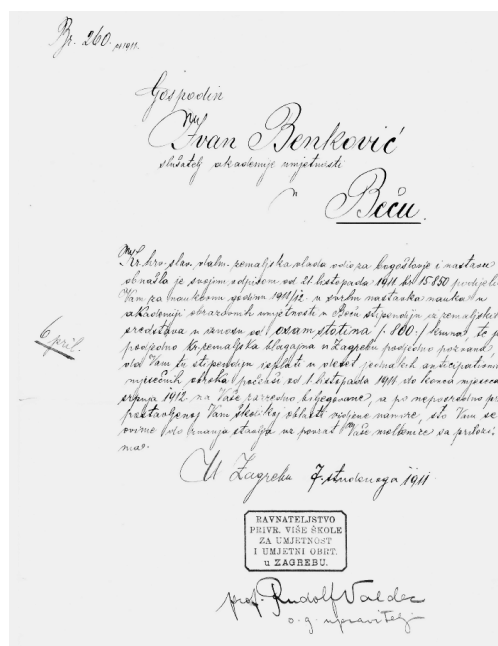 Br. 260. 1911.
Gospodin
Ivan Benković
slušatelj akademije umjetnosti
u
Beču.
Kr. hrv. slav. dalm. zemaljska vlada odio za bogoštovje i nastavu
obnašla je svojim odpisom od 21. listopada 1911 br 15850 podijeliti
Vam za naukovnu godinu 1911/12 u svrhu nastavka nauka u
akademiji obrazovnih umjetnosti u Beču stipendiju iz zemaljskih
sredstava u iznosu od osam stotina /:800:/ kruna, te je
podjedno kr. zemaljska blagajna u Zagrebu podjedno pozvana,
da Vam tu stipendiju isplati u deset jednakih anticipativnih
mjesečnih obroka počevši od 1. listopada 1911. do konca mjeseca
srpnja 1912 na Vaše
predstavljenoj Vam školskoj oblasti vidjene namire, što Vam se
ovime do znanja stavlja uz povrat Vaše molbenice sa prilozi-
ma.
6 april.
U Zagrebu 7. studenoga 1911
RAVNATELJSTVO
PRIVR. VIŠE ŠKOLE
ZA UMJETNOST
I UMJETNI OBRT.
u ZAGREBU.
prof. Rudolf Valdec
o. g. upravitelj